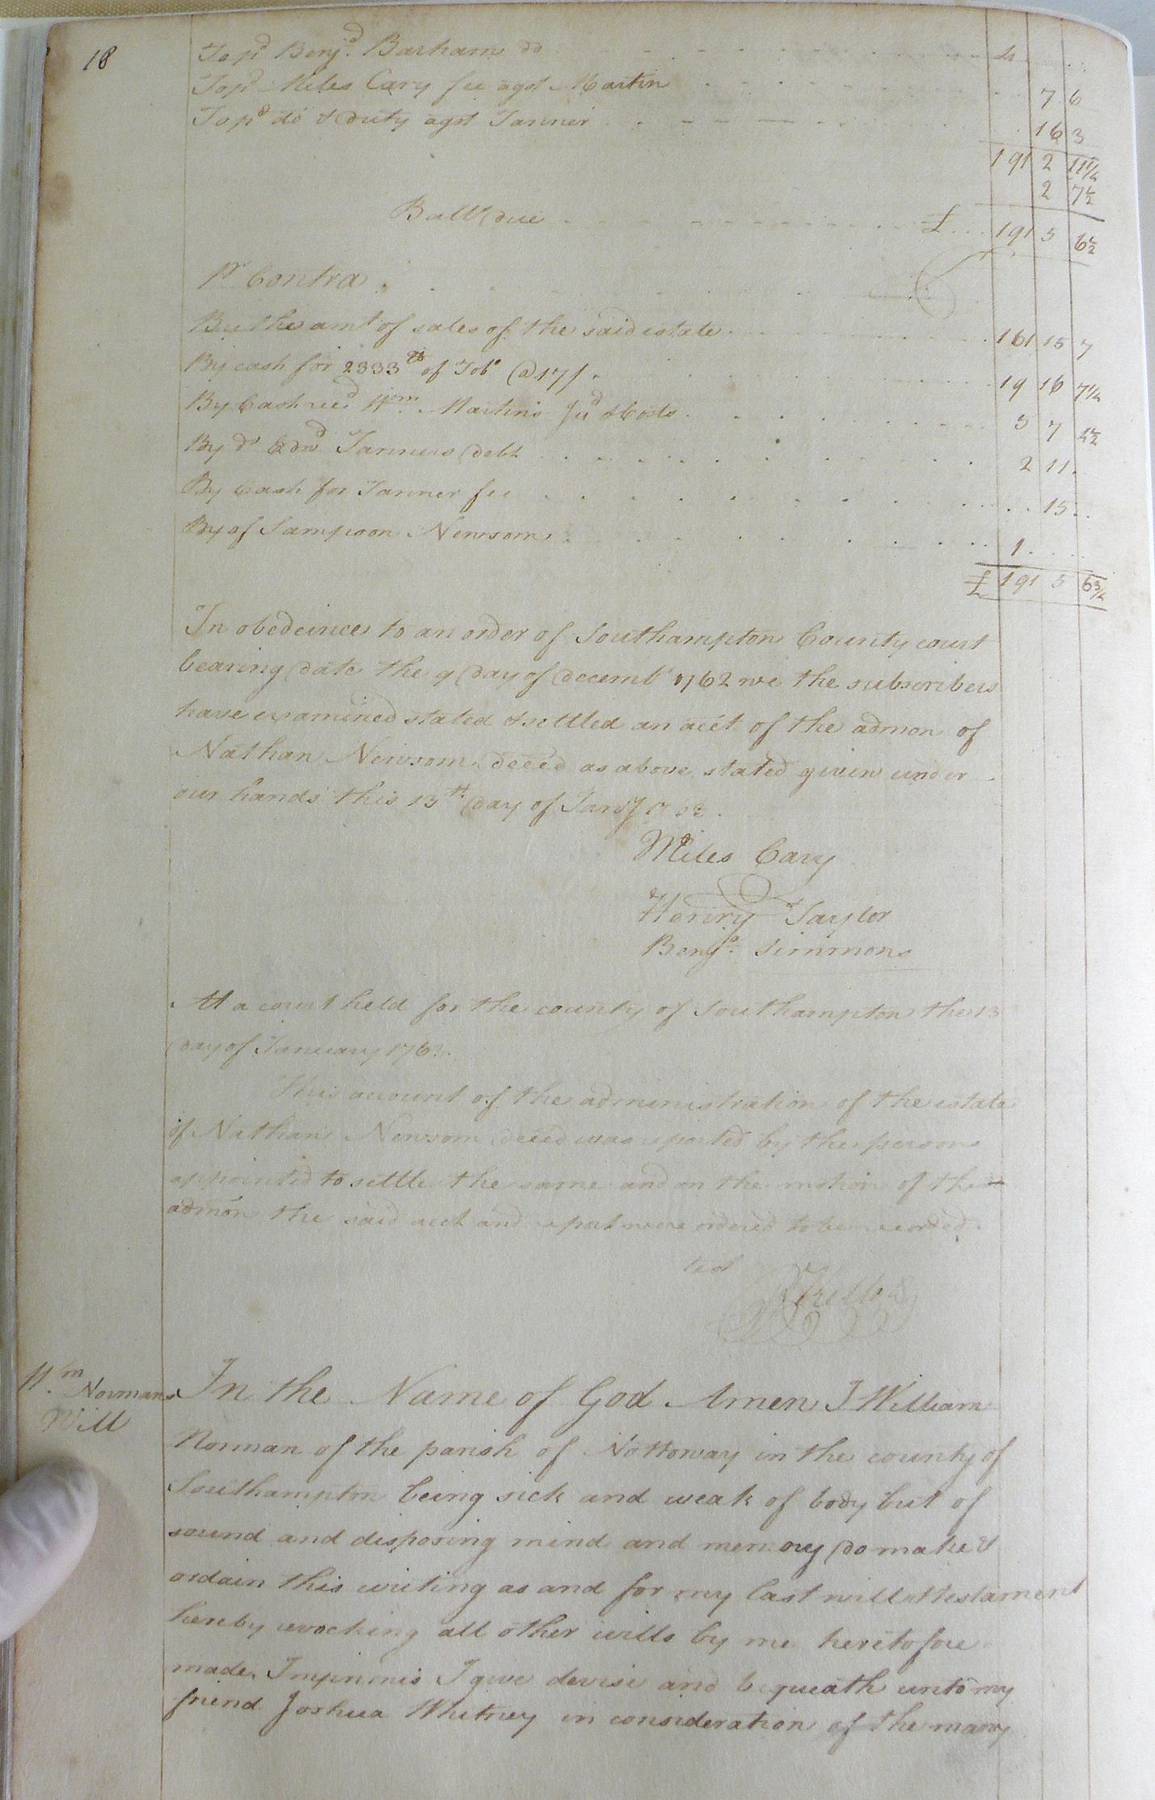 18
To pd. Benjd. Barham do 4
To pd. Miles Cary fee agst Martin 7 6
To pd do & duty agst Tanner 16 3
191 2 11 1/4
2 7 1/2
Balle due £ 191 5 6 1/2
Pr Contra
By the amt of sales of the said estate 161 15 7
By cash for 2333 lb of Tobo @ 17/ 19 16 7 1/4
By Cash recd Wm. Martins Jud & Costs 5 7 4 1/2
By do Edwd Tanners debt 2 11
By Cash for Tanner fee 15
By of Sampson Newsom 1
£ 191 5 6 3/4
In obedience to an order of Southampton County court
bearing date the 9 day of decembr 1762 we the subscribers
have examined stated & settled an acct of the admon of
Nathan Newsom deced as above stated given under
our hands this 13th day of Jany
Miles Cary
Henry Taylor
Benja. Simmons
At a court held for the county of Southampton the 13
day of January 176
This account of the administration of the estate
of Nathan Newsom deced was reported by the persons
appointed to settle the same and on the motion of the
admon the said acct and report were ordered to be recorded.
test
Wm Normans
Will
In the Name of God Amen I William
Norman of the parish of Nottoway in the county of
Southampton being sick and weak of body but of
sound and disposing mind and memory do make &
ordain this writing as and for my last will & testament
hereby revocking all other wills by me heretofore
made, Imprimis I give devise and bequeath unto my
friend Joshua Whitney in consideration of the many